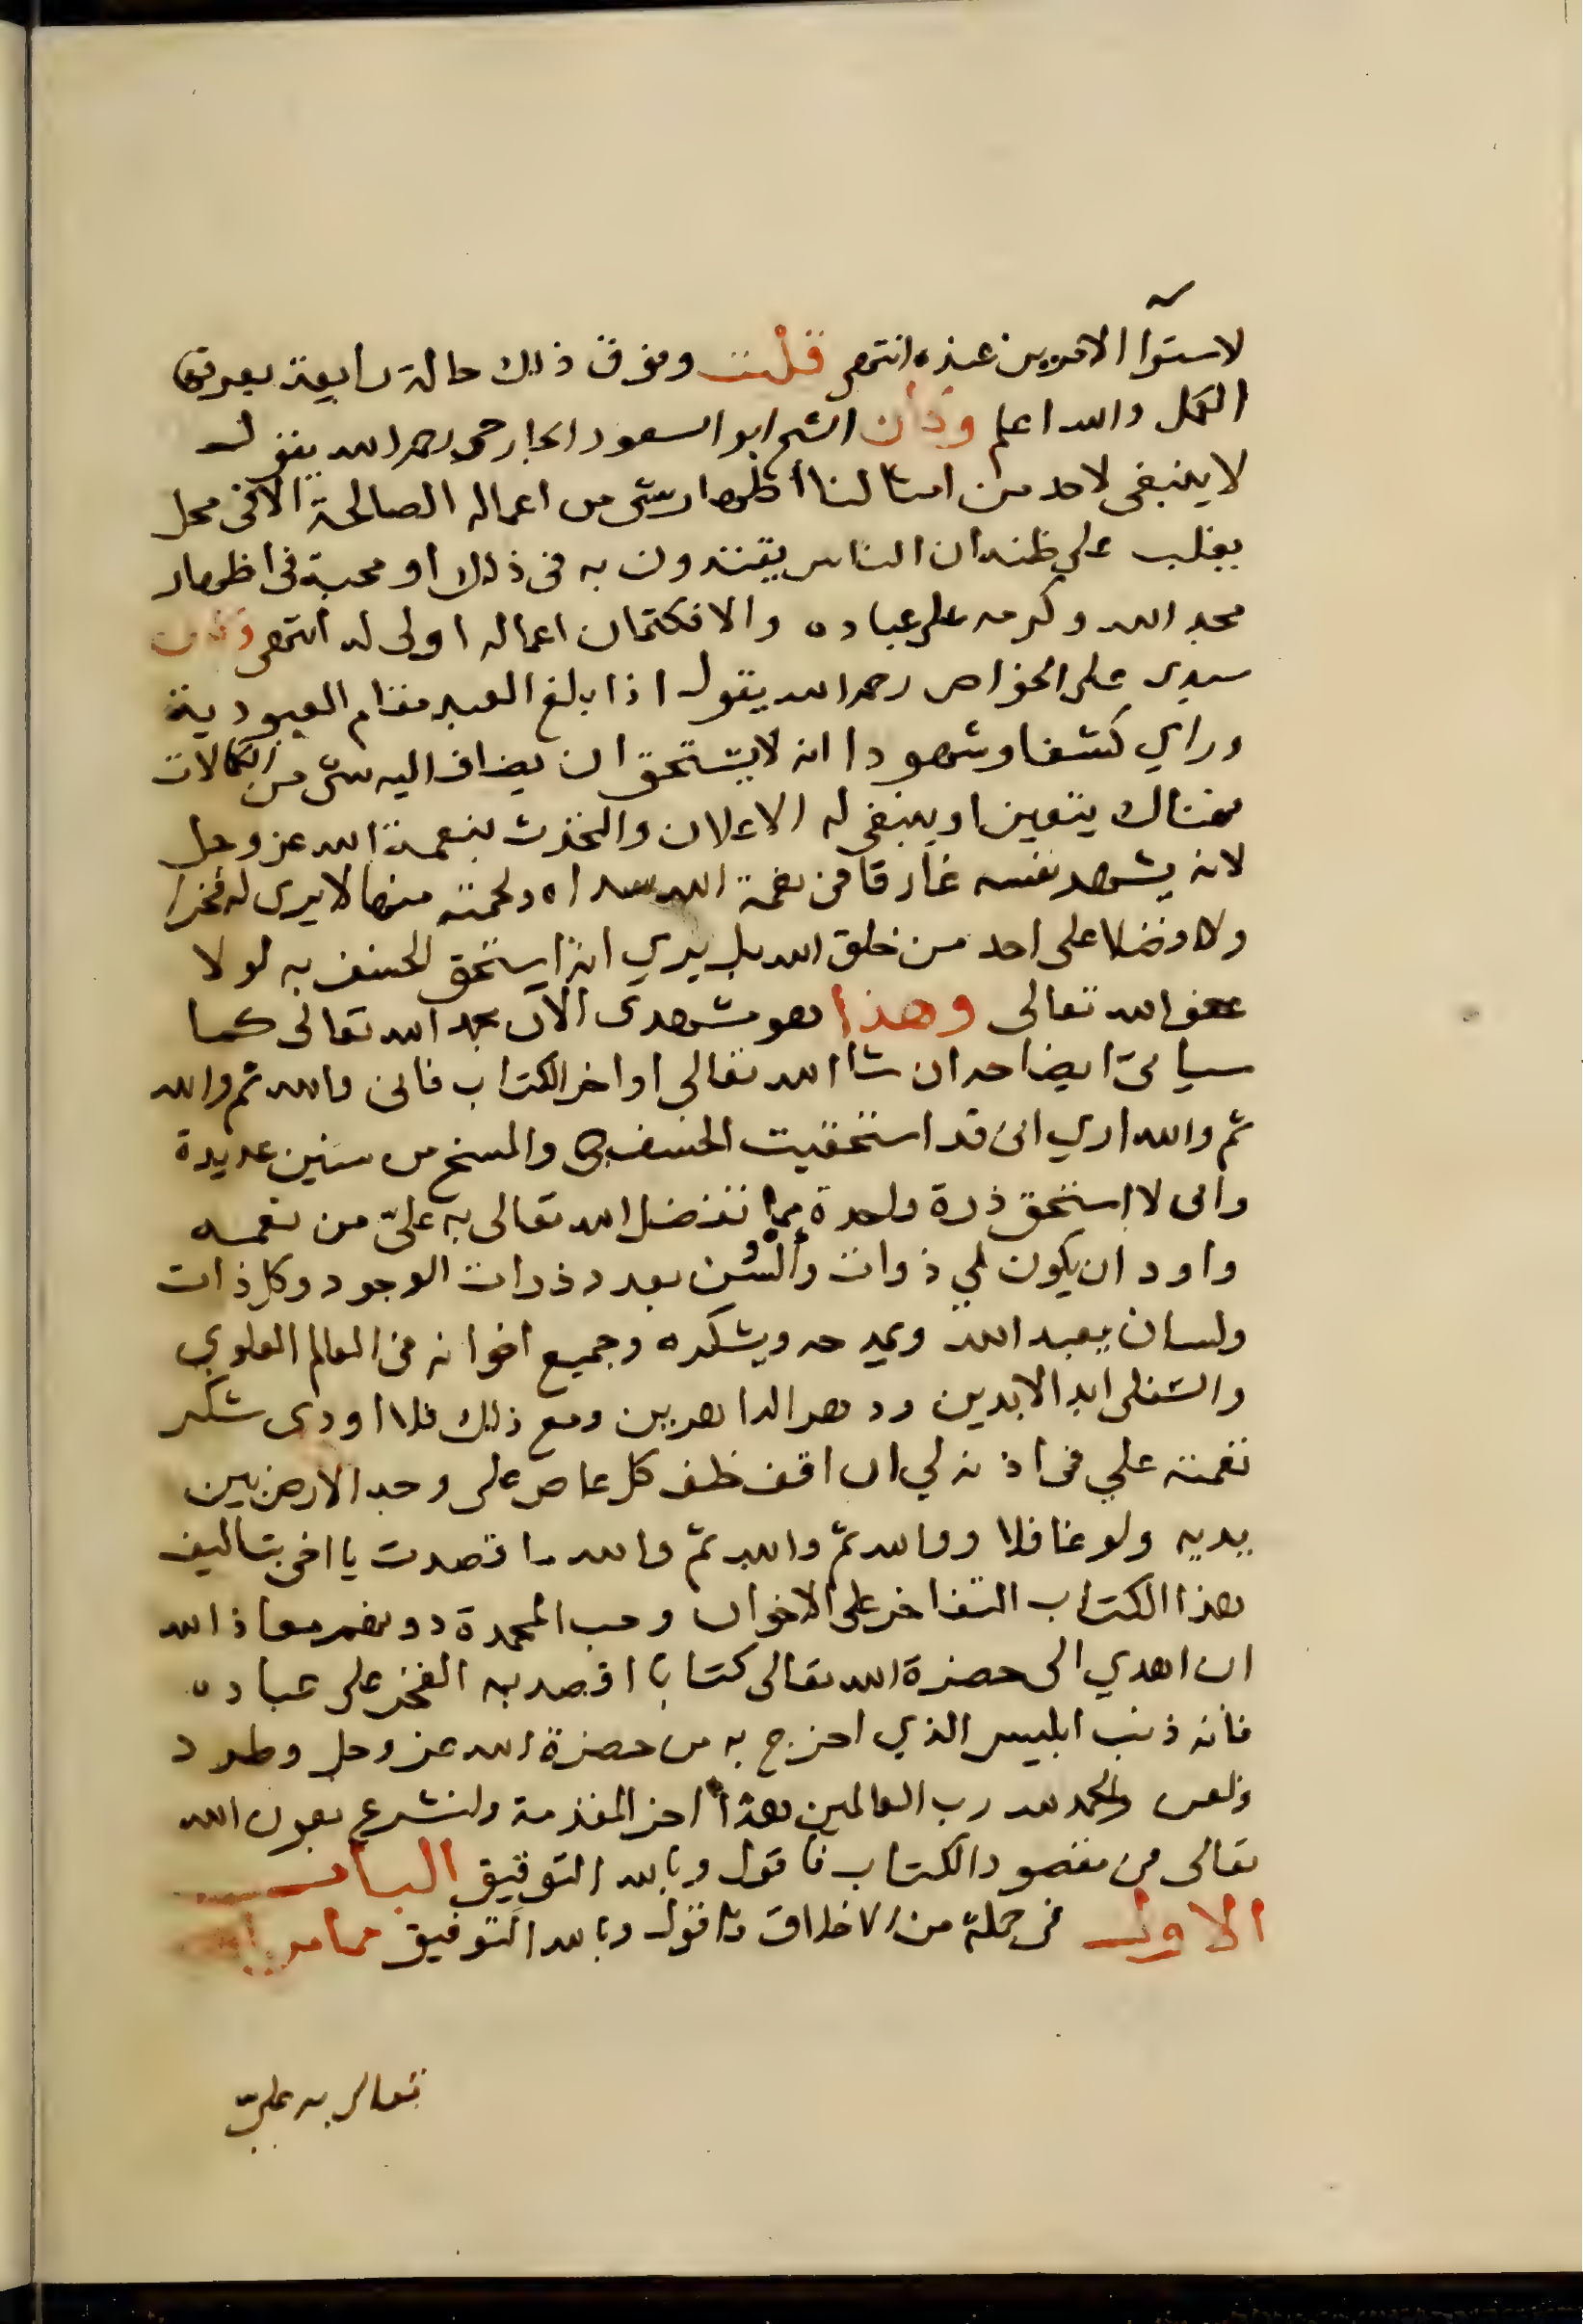 لاستوا الامرين عنده انتهى قلت وفوق ذلك حالة رابعة يعرفها
الكمل والله اعلم وكان الشيخ ابو السعود الجارحي رحمه الله يقول
لا ينبغي لاحد من امثالنا اظهار شي من اعماله الصالحة الا في محل
يغلب على ظنه ان الناس يقتدون به في ذلك او محبة في اظهار
مجد الله وكرمه على عباده والا فكتمان اعماله اولى له انتهى وكان
سيدي على الخواص رحمه الله يقول اذا بلغ العبد مقام العبودية
وراي كشفا وشهودا انه لا يستحق ان يضاف اليه شي من الكمالات
فهناك يتعين او ينبغي له الاعلان والتحدث بنعمة الله عز وجل
لانه يشهد نفسه غارقا في نعمة الله سداه ولحمته منها لا يرى له فخرا
ولا فضلا على احد من خلق الله بل يري انه استحق الخسف به لو لا
عفو الله تعالى وهذا هو مشهدي الان بحمد الله تعالى كما
سياتي ايضاحه ان شا الله تعالى اواخر الكتاب فاني والله ثم والله
ثم والله اري اني قد استحقيت الخسف بي والمسخ من سنين عديدة
واني لا استحق ذرة واحدة مما تفضل الله تعالى به عليّ من نعمه
واود ان يكون لي ذوات وألسُن بعدد ذرات الوجود وكل ذات
ولسان يعبد الله ويمدحه ويشكره وجميع اخوانه في العالم العلوي
والسفلى ابد الابدين ودهر الداهرين ومع ذلك فلا اودى شكر
نعمته علي في اذنه لي ان اقف خلف كل عاص على وجه الارض بين
يديه ولو غافلا ووالله ثم والله ثم والله ما قصدت يا اخي بتاليف
هذا الكتاب التفاخر على الاخوان وحب المحمدة دونهم معاذ الله
ان اهدي الى حضرة الله تعالى كتابا اقصد به الفخر على عباده
فانه ذنب ابليس الذي اخرج به من حضرة الله عز وجل وطرد
ولعن والحمد لله رب العالمين هذا اخر المقدمة ولنشرع بعون الله
تعالى في مقصود الكتاب فاقول وبالله التوفيق الباب
الاول في جملة من الاخلاق فاقول وبالله التوفيق مما من الله
تعالى به عليّ